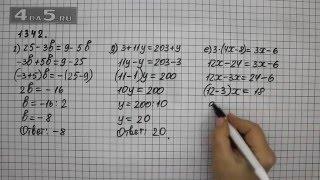 1342.
г) 25-3b=9-5b
-3b+5b=9-25
(-3+5)b=-(25-9)
2b=-16
b=-16:2
b=-8
Ответ: -8
д) 3+11y=203+y
11y-y=203-3
(11-1)y=200
10y=200
y=200:10
y=20
Ответ: 20.
е) 3·(4x-8)=3x-6
12x-24=3x-6
12x-3x=24-6
(12-3)x=18